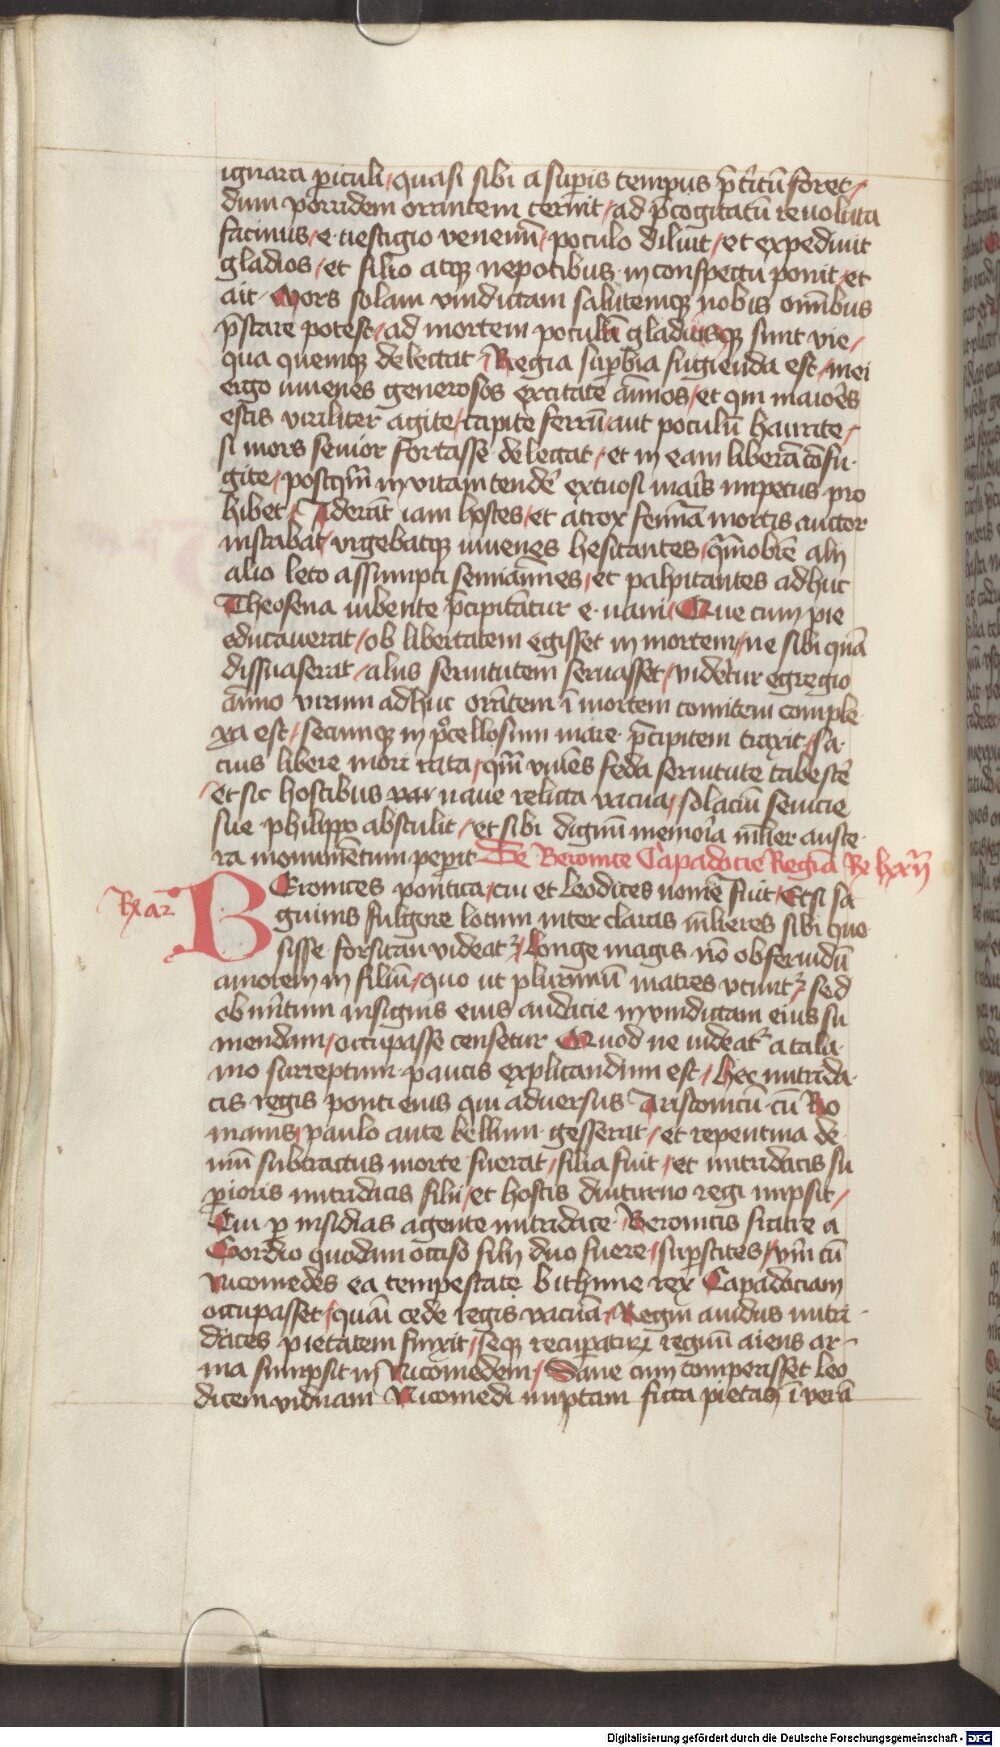 ignara ꝑiculi / quasi sibi a suꝑis tempus p̄stitū foret /
dum porridem orantem cernit / ad p̄cogitatū reuoluta
facinus / e uestigio venenū / poculo diluit / et expediuit
gladios / et filio atqꝫ nepotibus in conspectu ponit / et
ait Mors solam vindictam salutemqꝫ nobis om̄ibus
p̄stare potest / ad mortem poculū gladiusqꝫ sunt vie /
qua quemqꝫ delectat / Regia suꝑbia fugienda est / mei
ergo iuuenes generosos excitate aīmos / et qui maiores
estis viriliter agite / capite ferrū / aut poculū haurite /
si mors seuior fortasse delectat / et in eam liberā cōfu
gite / postqm̄ in vitam tendē̄ extuosi maris impetus pro
hibet / Aderāt iam hostes / et atrox femīa mortis auctor
instabāt / vrgebatqꝫ iuuenes hesitantes / qm̄obrē alij
alio leto assumpti semianimes / et palpitantes adhuc
Theosena iubente p̄cipitātur e naui / Que cum pie
educauerat / ob libertatem egisset in mortem / ne sibi quā
dissuaserat / alijs seruitutem seruasset / vidētur egregio
aīmo virum adhuc orātem ī mortem comitem comple
xa est / secumqꝫ in ꝓcellosum mare p̄cipitem traxit / sa
cius libere mori rata / qm̄ viuēs feda seruitute tabescē̄
/ et sic hostibus naue relicta vacua / solaciū seuicie
sue philippo abstulit / et sibi dignū memoria mulier auste
ra monumētum peperit De Beronice Capadocie Regīa Rx lxxij
Rx ar
BEronices pontica / cui et Leodices nomē fuit / Etsi sa
guinis fulgore locum inter claras mlieres sibi que
sisse forsitan videatꝛ / Longe magis nō ob feruidū
amorem in filiū / quo ut plurimū matres vtuntꝛ / sed
ob inītum insignis eius audacie in vindictam eius su
mendam / occupasse censetur Quod ne uideatꝛ a cala
mo surreptum paucis explicandum est / hec mitrida
cis regis ponti eius qui aduersus Aristonicū cū Ro
manis / paulo ante bellum gesserat / et repentina de
mū subtractus morte fuerat / filia fuit / et mitridacis su
ꝑioris mitridacis filij / et hostis diuturno regi nupsit /
Cui ꝑ insidias agente mitridace Beronicis fratre a
Gordio quodam occiso filij duo fuere / suꝑstites / vm̄ cū
Nicomedes ea tempestate bithinie rex Capadociam
occupasset / quasi cede regis vacuā / Regni auidus mitri
daces pietatem finxit / seqꝫ recuperaturꝫ regnū aiens ar
ma sumpsit in Nicomedem / Sane cum comperisset Leo
dicem viduam Nicomedi nuptam ficta pietas ī verā
Digitalisierung gefördert durch die Deutsche Forschungsgemeinschaft - DFG